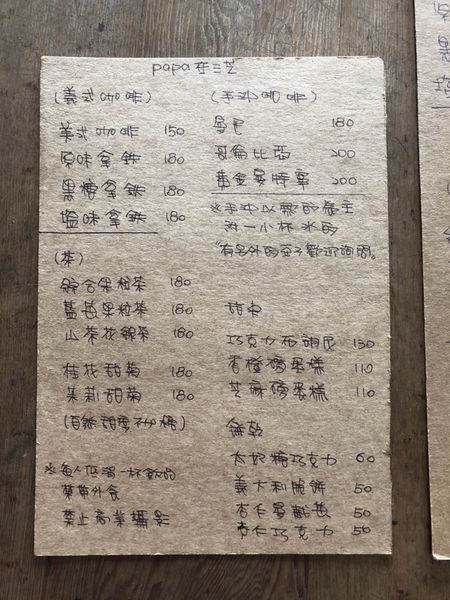 papa在三芝
(義式咖啡)
美式咖啡 150
原味拿鉄 180
黑糖拿鉄 180
塩味拿鉄 180
(茶)
綜合果粒茶 180
藍莓果粒茶 180
山茶花綠茶 180
桂花甜菊 180
茉莉甜菊 180
(自然甜度不加糖)
※每人低消一杯飲品
禁帶外食
禁止商業攝影
(手沖咖啡)
曼巴 180
哥倫比亞 200
黃金曼特寧 200
※手沖以熱的為主
附一小杯冰的
"有另外的豆子歡迎詢問。
甜点
巧克力布朗尼 130
香橙磅蛋糕 110
芝麻磅蛋糕 110
餅乾
太妃糖巧克力 60
義大利脆餅 50
杏仁蔓越莓 50
杏仁巧克力 50
原
黑
塩